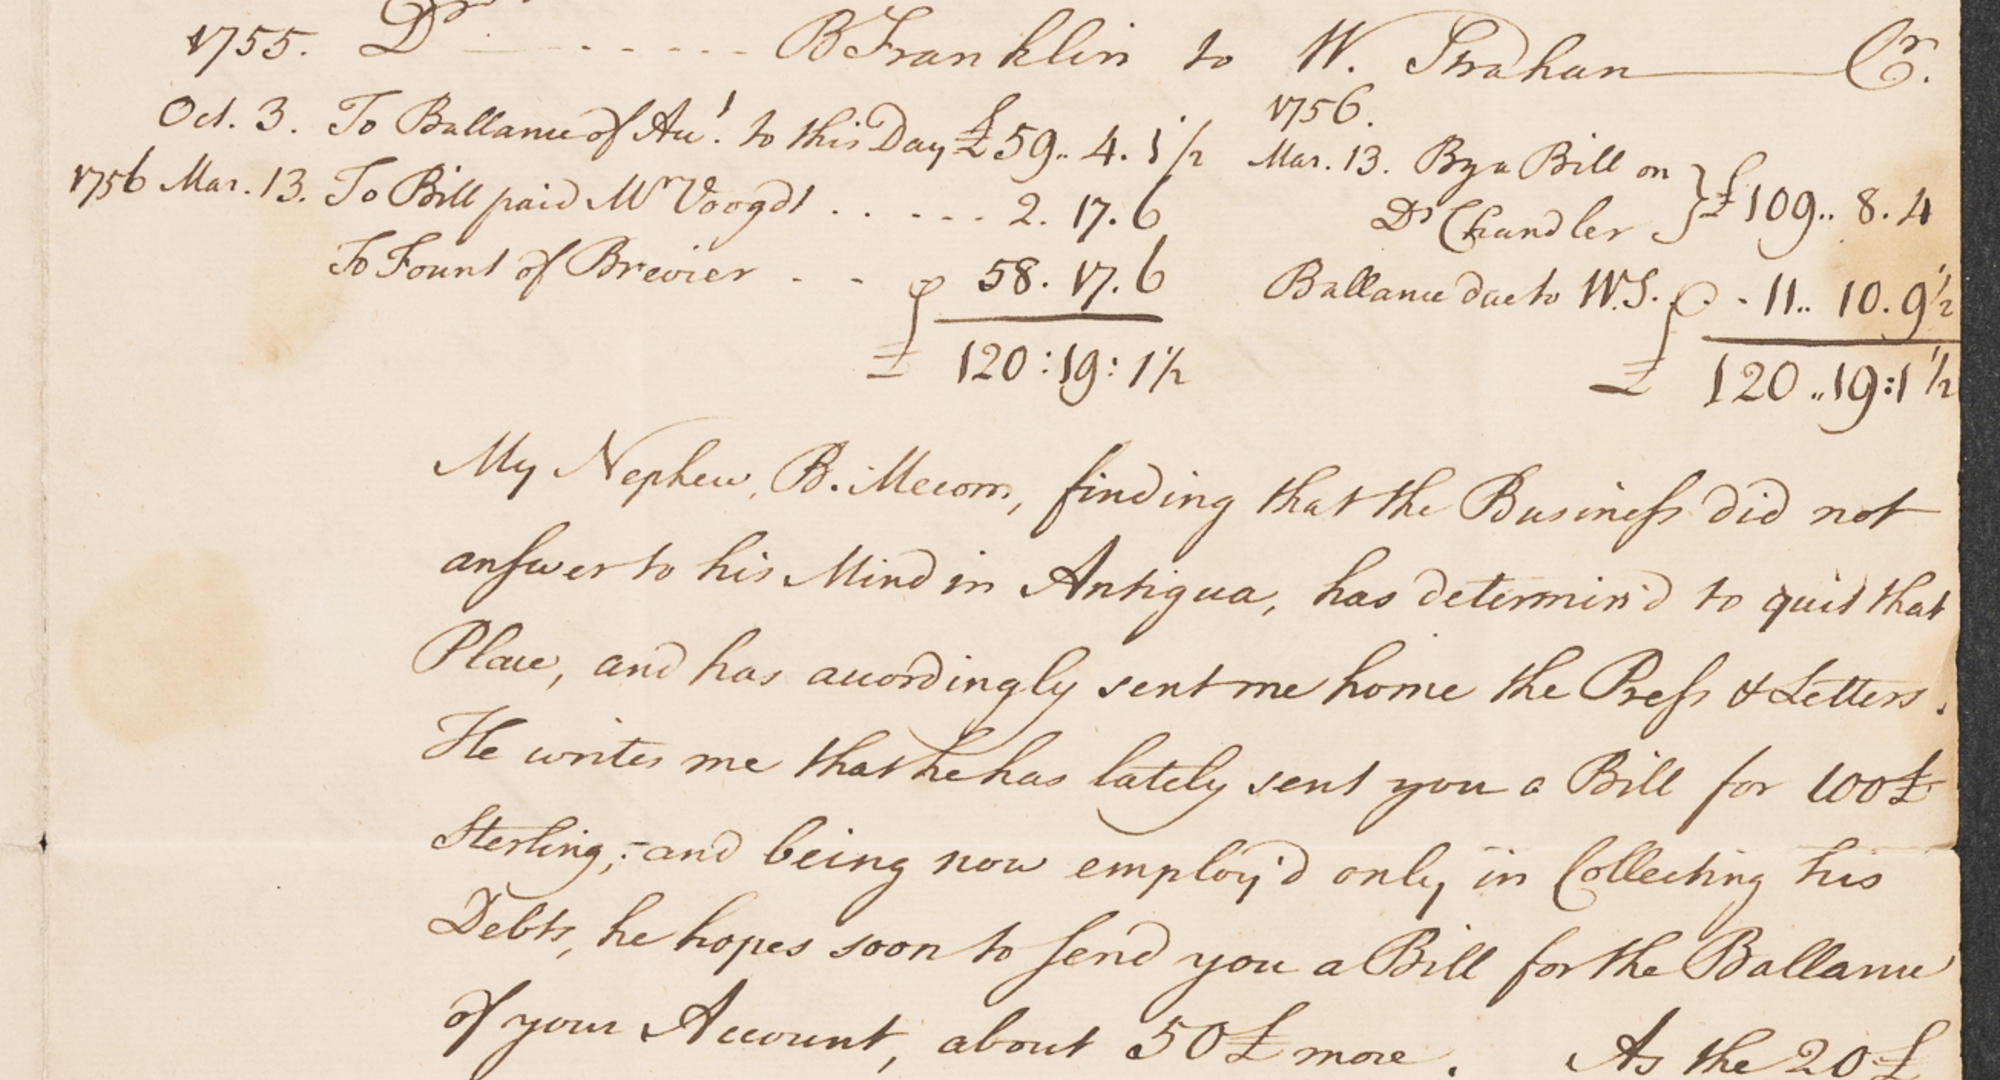 1755. Dr - - - - - - B Franklin to W. Strahan Cr.
Oct. 3. To Ballance of Acct. to this Day £59.. 4. 1 1/2
1756 Mar. 13. To Bill paid Mr Voogdt . . - - - - 2. 17. 6
To Fount of Brevier - - - 58. 17. 6
£ 120 : 19 : 1 1/2
1756.
Mar. 13. By a Bill on
Dr Chandler } £109.. 8. 4
Ballance due to W.S. - 11.. 10. 9 1/2
£ 120 .. 19 : 1 1/2
My Nephew, B. Mecom, finding that the Business did not
answer to his Mind in Antigua, has determin'd to quit that
Place, and has accordingly sent me home the Press & Letters.
He writes me that he has lately sent you a Bill for 100£
Sterling; - and being now employ'd only in Collecting his
Debts, he hopes soon to send you a Bill for the Ballance
of your Account, about 50£ more. As the 20£